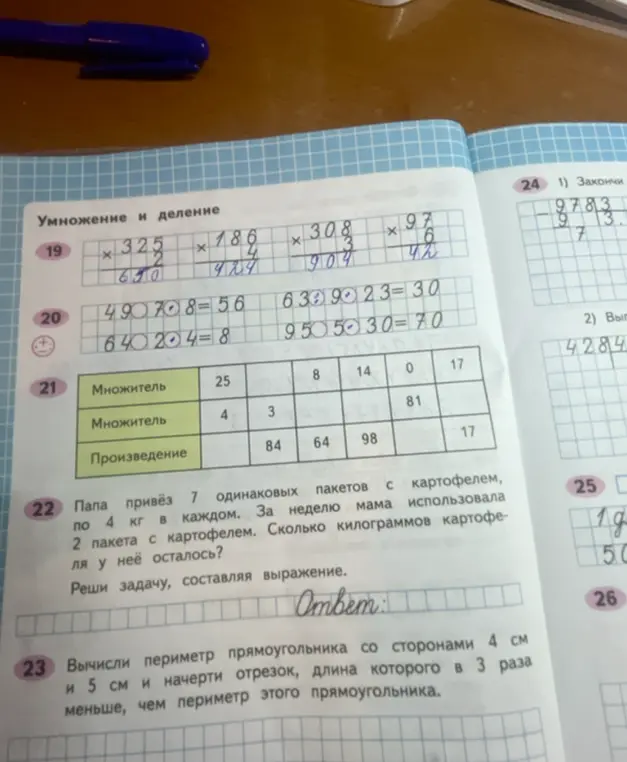 Умножение и деление
19
× 325 × 186 × 308 × 97
2 4 3 6
650 424 904 42
20
49 7 · 8 = 56 63 : 9 · 23 = 30
64 2 · 4 = 8 95 5 · 30 = 70
21
Множитель 25 8 14 0 17
Множитель 4 3 81
Произведение 84 64 98 17
22 Папа привёз 7 одинаковых пакетов с картофелем,
по 4 кг в каждом. За неделю мама использовала
2 пакета с картофелем. Сколько килограммов картофе-
ля у неё осталось?
Реши задачу, составляя выражение.
Ответ:
23 Вычисли периметр прямоугольника со сторонами 4 см
и 5 см и начерти отрезок, длина которого в 3 раза
меньше, чем периметр этого прямоугольника.
24 1) Закончи
978 3
− 9 3
7
2)
428 4
25
1
5
26